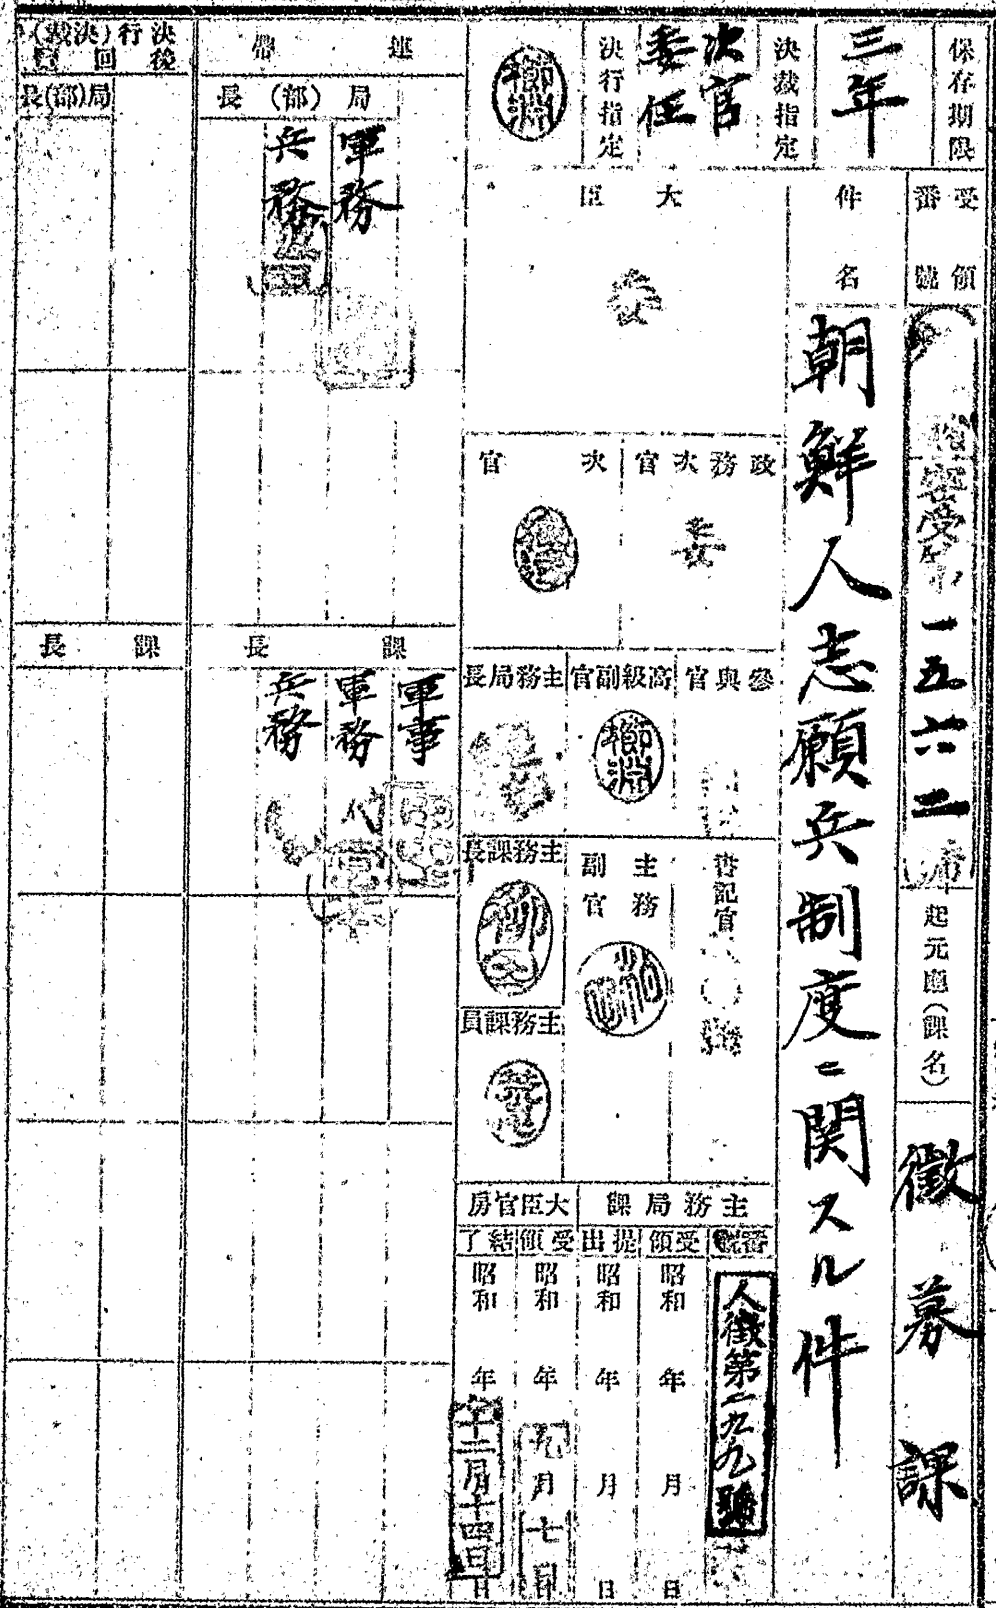 保存期限
三年
決裁指定
次官
委任
決行指定
櫛淵
受領
番號
密受第一五六二號
起元廳(課名)
徵募課
件名
朝鮮人志願兵制度ニ関スル件
大臣
委
政務次官
委
次官
參與官
高級副官
櫛淵
主務局長
書記官
主務
副官
主務課長
主務課員
主務局課
番號
人徵第二九九號
受領
昭和 年 月 日
提出
昭和 年 月 日
大臣官房
受領
昭和 年 九月七日
結了
昭和 年 十二月十四日
連帶
局(部)長
軍務
兵務
課長
軍事
軍務
代
兵務
決行(決裁)
後回覽
局(部)長
課長